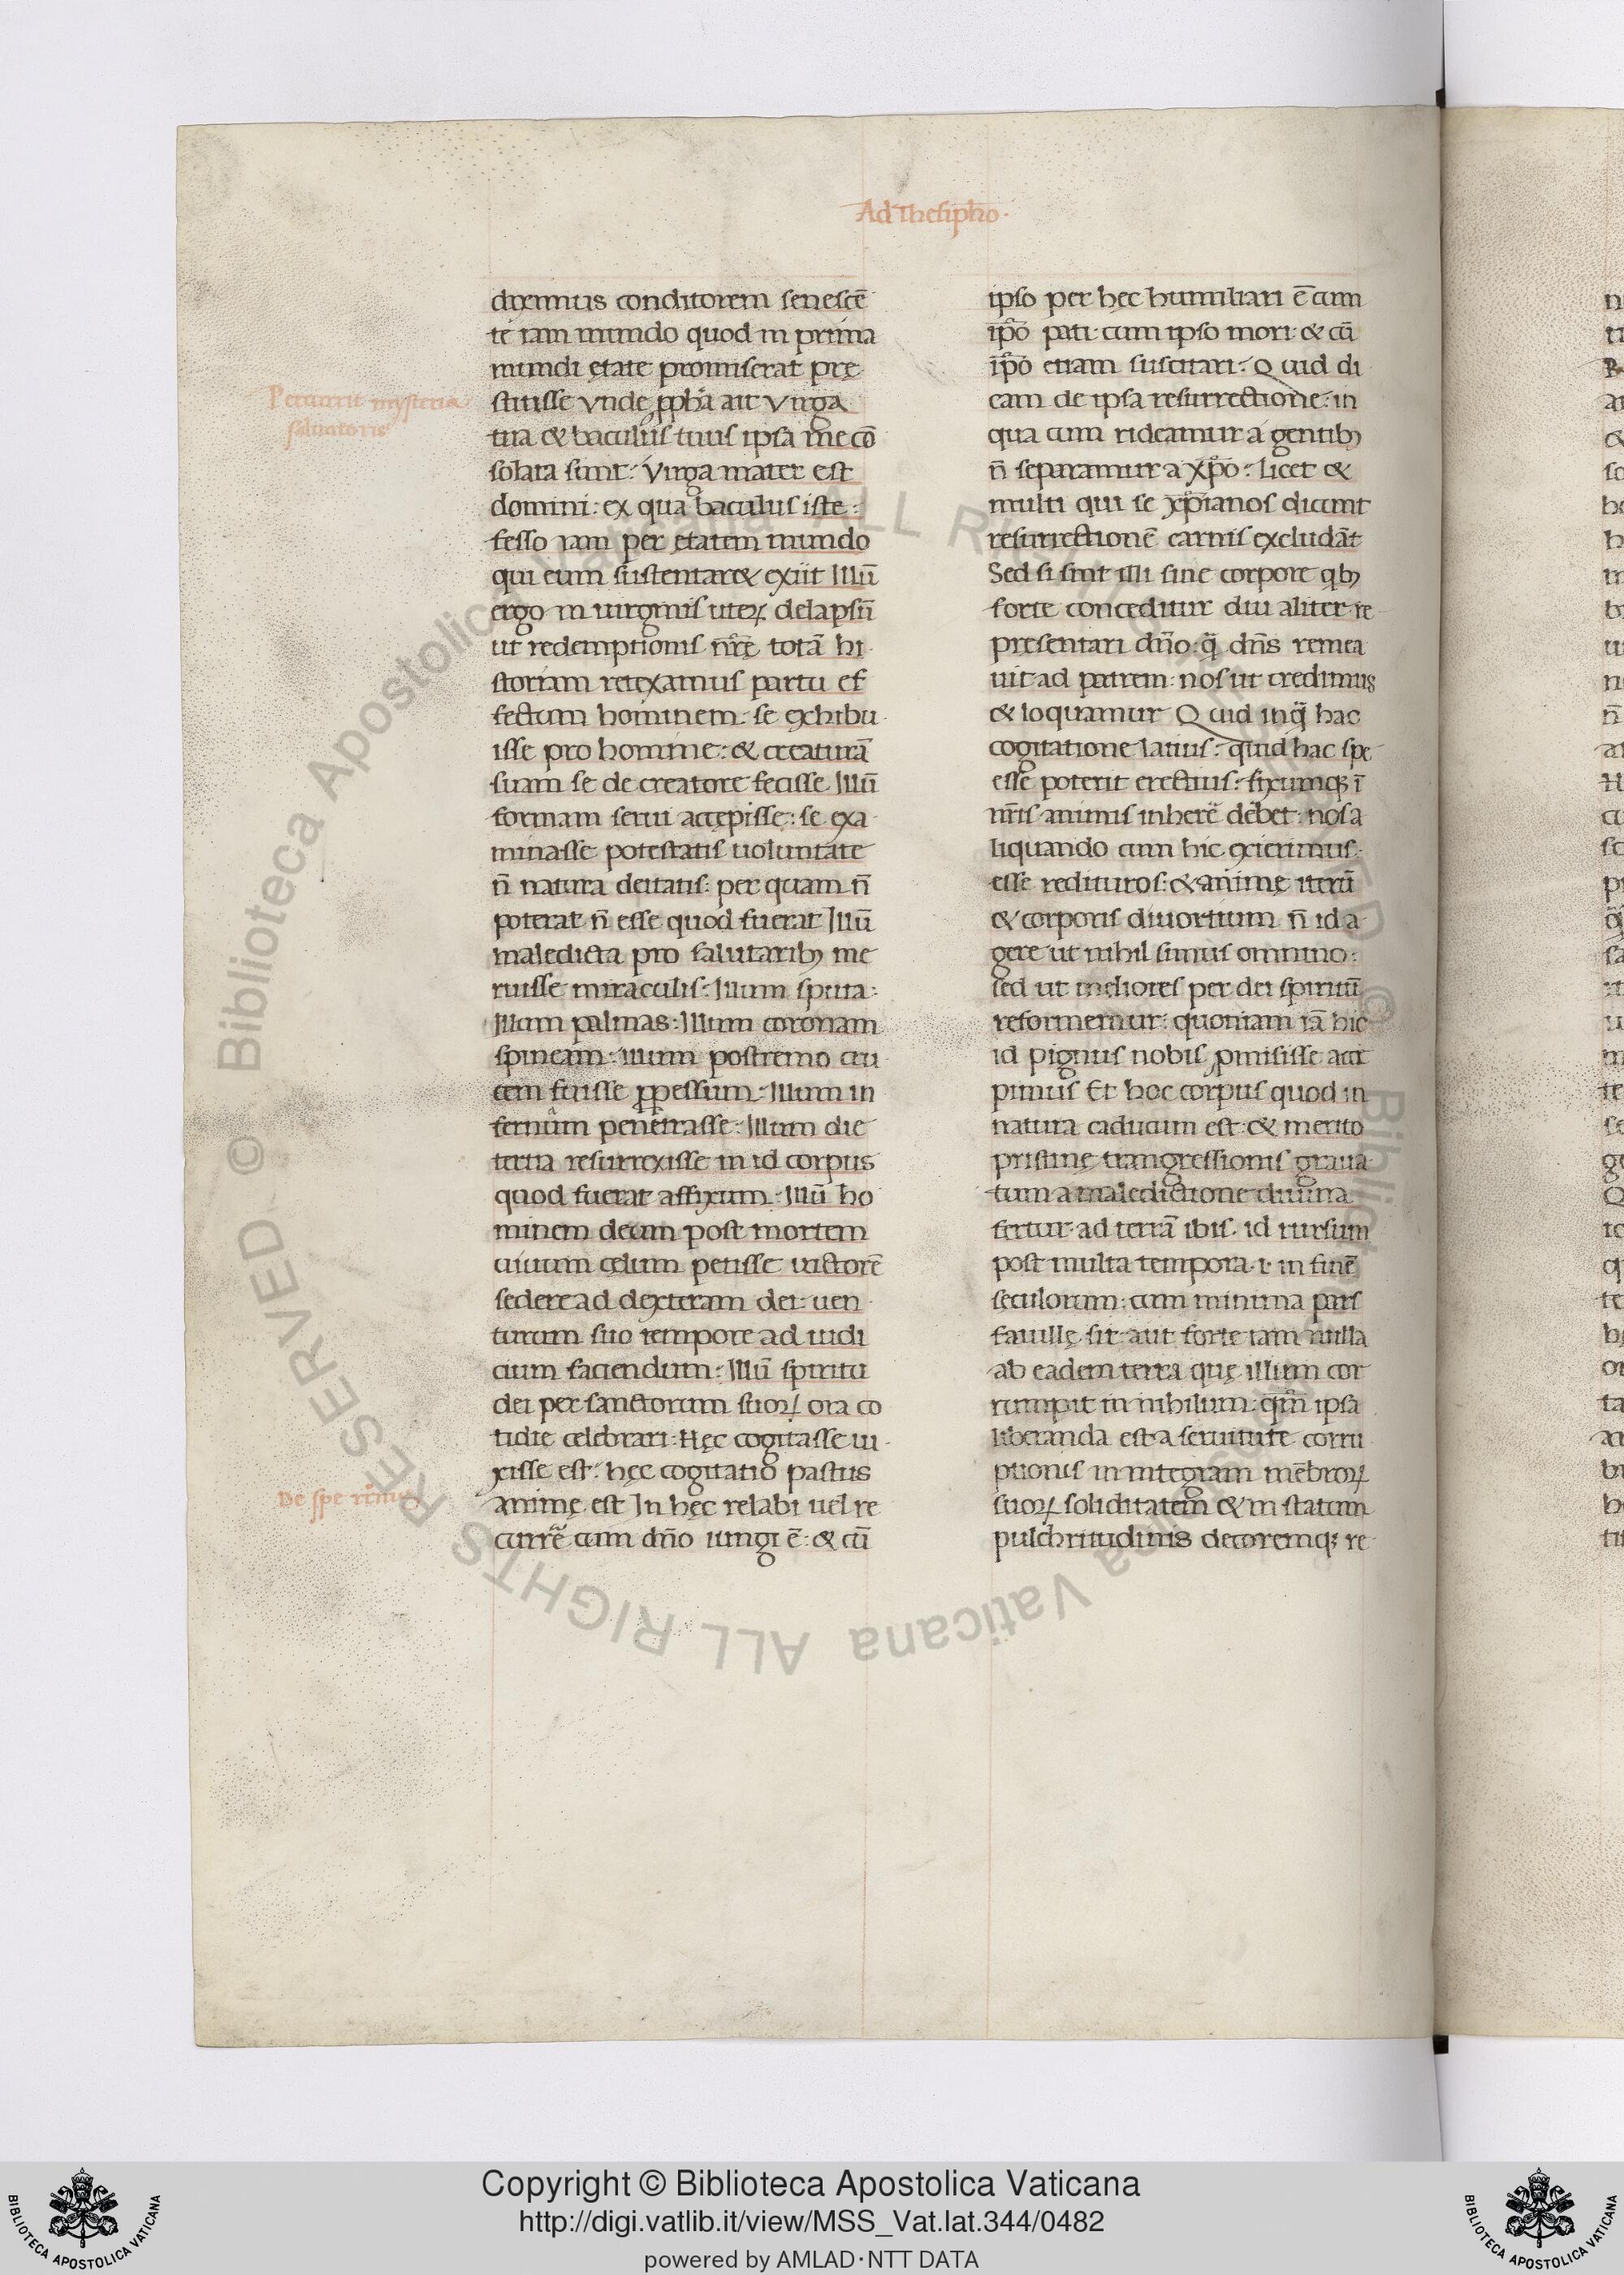 Ad Thesiphō.
diximus conditorem senescē
te iam mundo quod in prima
mundi ętate promiserat pre
stitisse vnde ꝓpha ait Virga
tua & baculus tuus ipsa me cō
solata sunt: Virga mater est
domini: ex qua baculus iste:
fesso iam per ętatem mundo
qui eum sustentar& exiit Illū
ergo in uirginis uteꝝ delapsū
ut redemptionis nr̄ę totā hi
storiam retexamus partu ef
fectum hominem: se exhibu
isse pro homine: & creaturā
suam se de creatore fecisse Illū
formam serui accępisse: se exa
minasse potestatis uoluntate
n̄ natura deitatis: per quam n̄
poterat n̄ esse quod fuerat Illū
maledicta pro salutarib; me
ruisse miraculis: Illum sputa:
Illum palmas: Illum coronam
spineam: illum postremo cru
cem fuisse ꝑpessum: Illum in
fernum penetrasse: Illum die
tertia resurrexisse in id corpus
quod fuerat affixum: Illū ho
minem deum post mortem
uiuum cęlum petisse uictorē
sedere ad dexteram dei: uen
turum suo tempore ad iudi
cium faciendum: Illū spiritu
dei per sanctorum suoꝝ ora co
tidie celebrari: Hęc cogitasse ui
xisse est: hęc cogitatio pastus
animę est In hęc relabi uel re
currē cum dn̄o iungi ē: & cū
Petiunt mysteria
saluatoris
De spe
ipso per hęc humiliari ē cum
ip̄o pati cum ipso mori & cū
ip̄o etiam suscitari: Quid di
cam de ipsa resurrectione: in
qua cum rideamur a gentib;
n̄ separamur a xp̄o: licet &
multi qui se xp̄ianos dicunt
resurrectionē carnis excludāt
Sed si sint illi sine corpore qb;
forte conceditur diu aliter re
presentari dn̄o: q̄ dn̄s remea
uit ad patrem: nos ut credimus
& loquamur Quid inq̄ hac
cogitatione latius: quid hac spe
esse poterit erectius: fixumq; ī
nr̄is animis inherē debet: nos a
liquando cum hic exierimus
esse redituros: & animę iterū
& corporis diuortium n̄ id a
gere ut nihil simus omnino:
sed ut meliores per dei spiritū
reformemur: quoniam iā hic
id pignus nobis ꝓmisisse acci
pimus Et hoc corpus quod in
natura caducum est: & merito
pristinę trangressionis graua
tum a maledictione diuina
fertur ad terrā ibis. id rursum
post multa tempora .i. in finē
seculorum: cum minima pars
fauillę sit aut forte iam nulla
ab eadem terra quę illum cor
rumpit in nihilum: qm̄ ipsa
liberanda est a seruitute corru
ptionis in integram mēbroꝝ
suoꝝ soliditatem & in statum
pulchritudinis decoremq; re
Copyright © Biblioteca Apostolica Vaticana
http://digi.vatlib.it/view/MSS_Vat.lat.344/0482
powered by AMLAD·NTT DATA
BIBLIOTECA APOSTOLICA VATICANA
BIBLIOTECA APOSTOLICA VATICANA
© Biblioteca Apostolica Vaticana ALL RIGHTS RESERVED
© Biblioteca Apostolica Vaticana ALL RIGHTS RESERVED